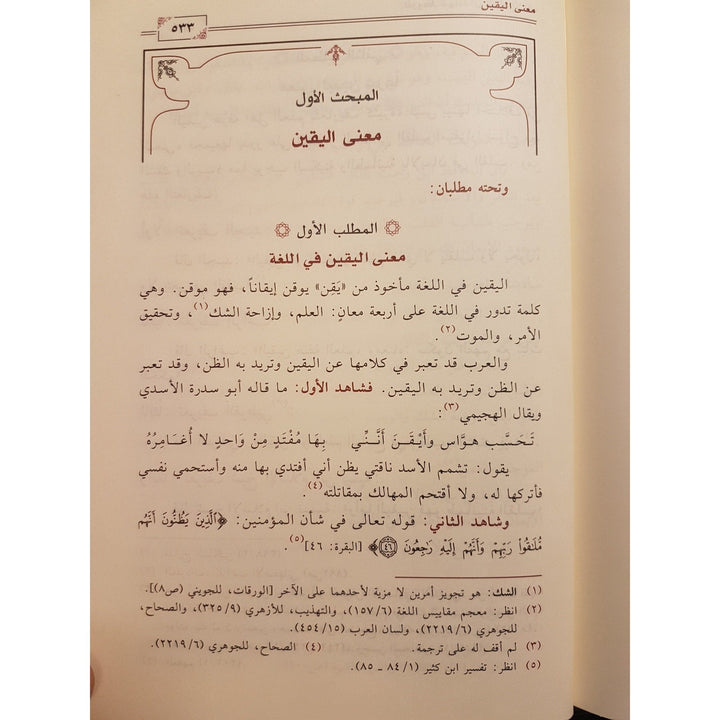 معنى اليقين
٥٣٣
المبحث الأول
معنى اليقين
وتحته مطلبان:
المطلب الأول
معنى اليقين في اللغة
اليقين في اللغة مأخوذ من «يَقِن» يوقن إيقاناً، فهو موقن. وهي
كلمة تدور في اللغة على أربعة معانٍ: العلم، وإزاحة الشك(١)، وتحقيق
الأمر، والموت(٢).
والعرب قد تعبر في كلامها عن اليقين وتريد به الظن، وقد تعبر
عن الظن وتريد به اليقين. فشاهد الأول: ما قاله أبو سدرة الأسدي
ويقال الهجيمي(٣):
تَحَسَّب هوَّاس وأَيْقَـنَ أَنَّـنِّي بِهَا مُفْتَدٍ مِنْ وَاحِدٍ لا أُغَـامِرُهُ
يقول: تشمم الأسد ناقتي يظن أني أفتدي بها منه وأستحمي نفسي
فأتركها له، ولا أقتحم المهالك بمقاتلته(٤).
وشاهد الثاني: قوله تعالى في شأن المؤمنين: ﴿ٱلَّذِينَ يَظُنُّونَ أَنَّهُم
مُّلَٰقُوا۟ رَبِّهِمْ وَأَنَّهُمْ إِلَيْهِ رَٰجِعُونَ ٤٦﴾ [البقرة: ٤٦](٥).
(١) الشك: هو تجويز أمرين لا مزية لأحدهما على الآخر [الورقات، للجويني (ص٨)].
(٢) انظر: معجم مقاييس اللغة (١٥٧/٦)، والتهذيب، للأزهري (٣٢٥/٩)، والصحاح،
للجوهري (٢٢١٩/٦)، ولسان العرب (٤٥٤/١٥).
(٣) لم أقف له على ترجمة. (٤) الصحاح، للجوهري (٢٢١٩/٦).
(٥) انظر: تفسير ابن كثير (٨٤/١ ـ ٨٥).